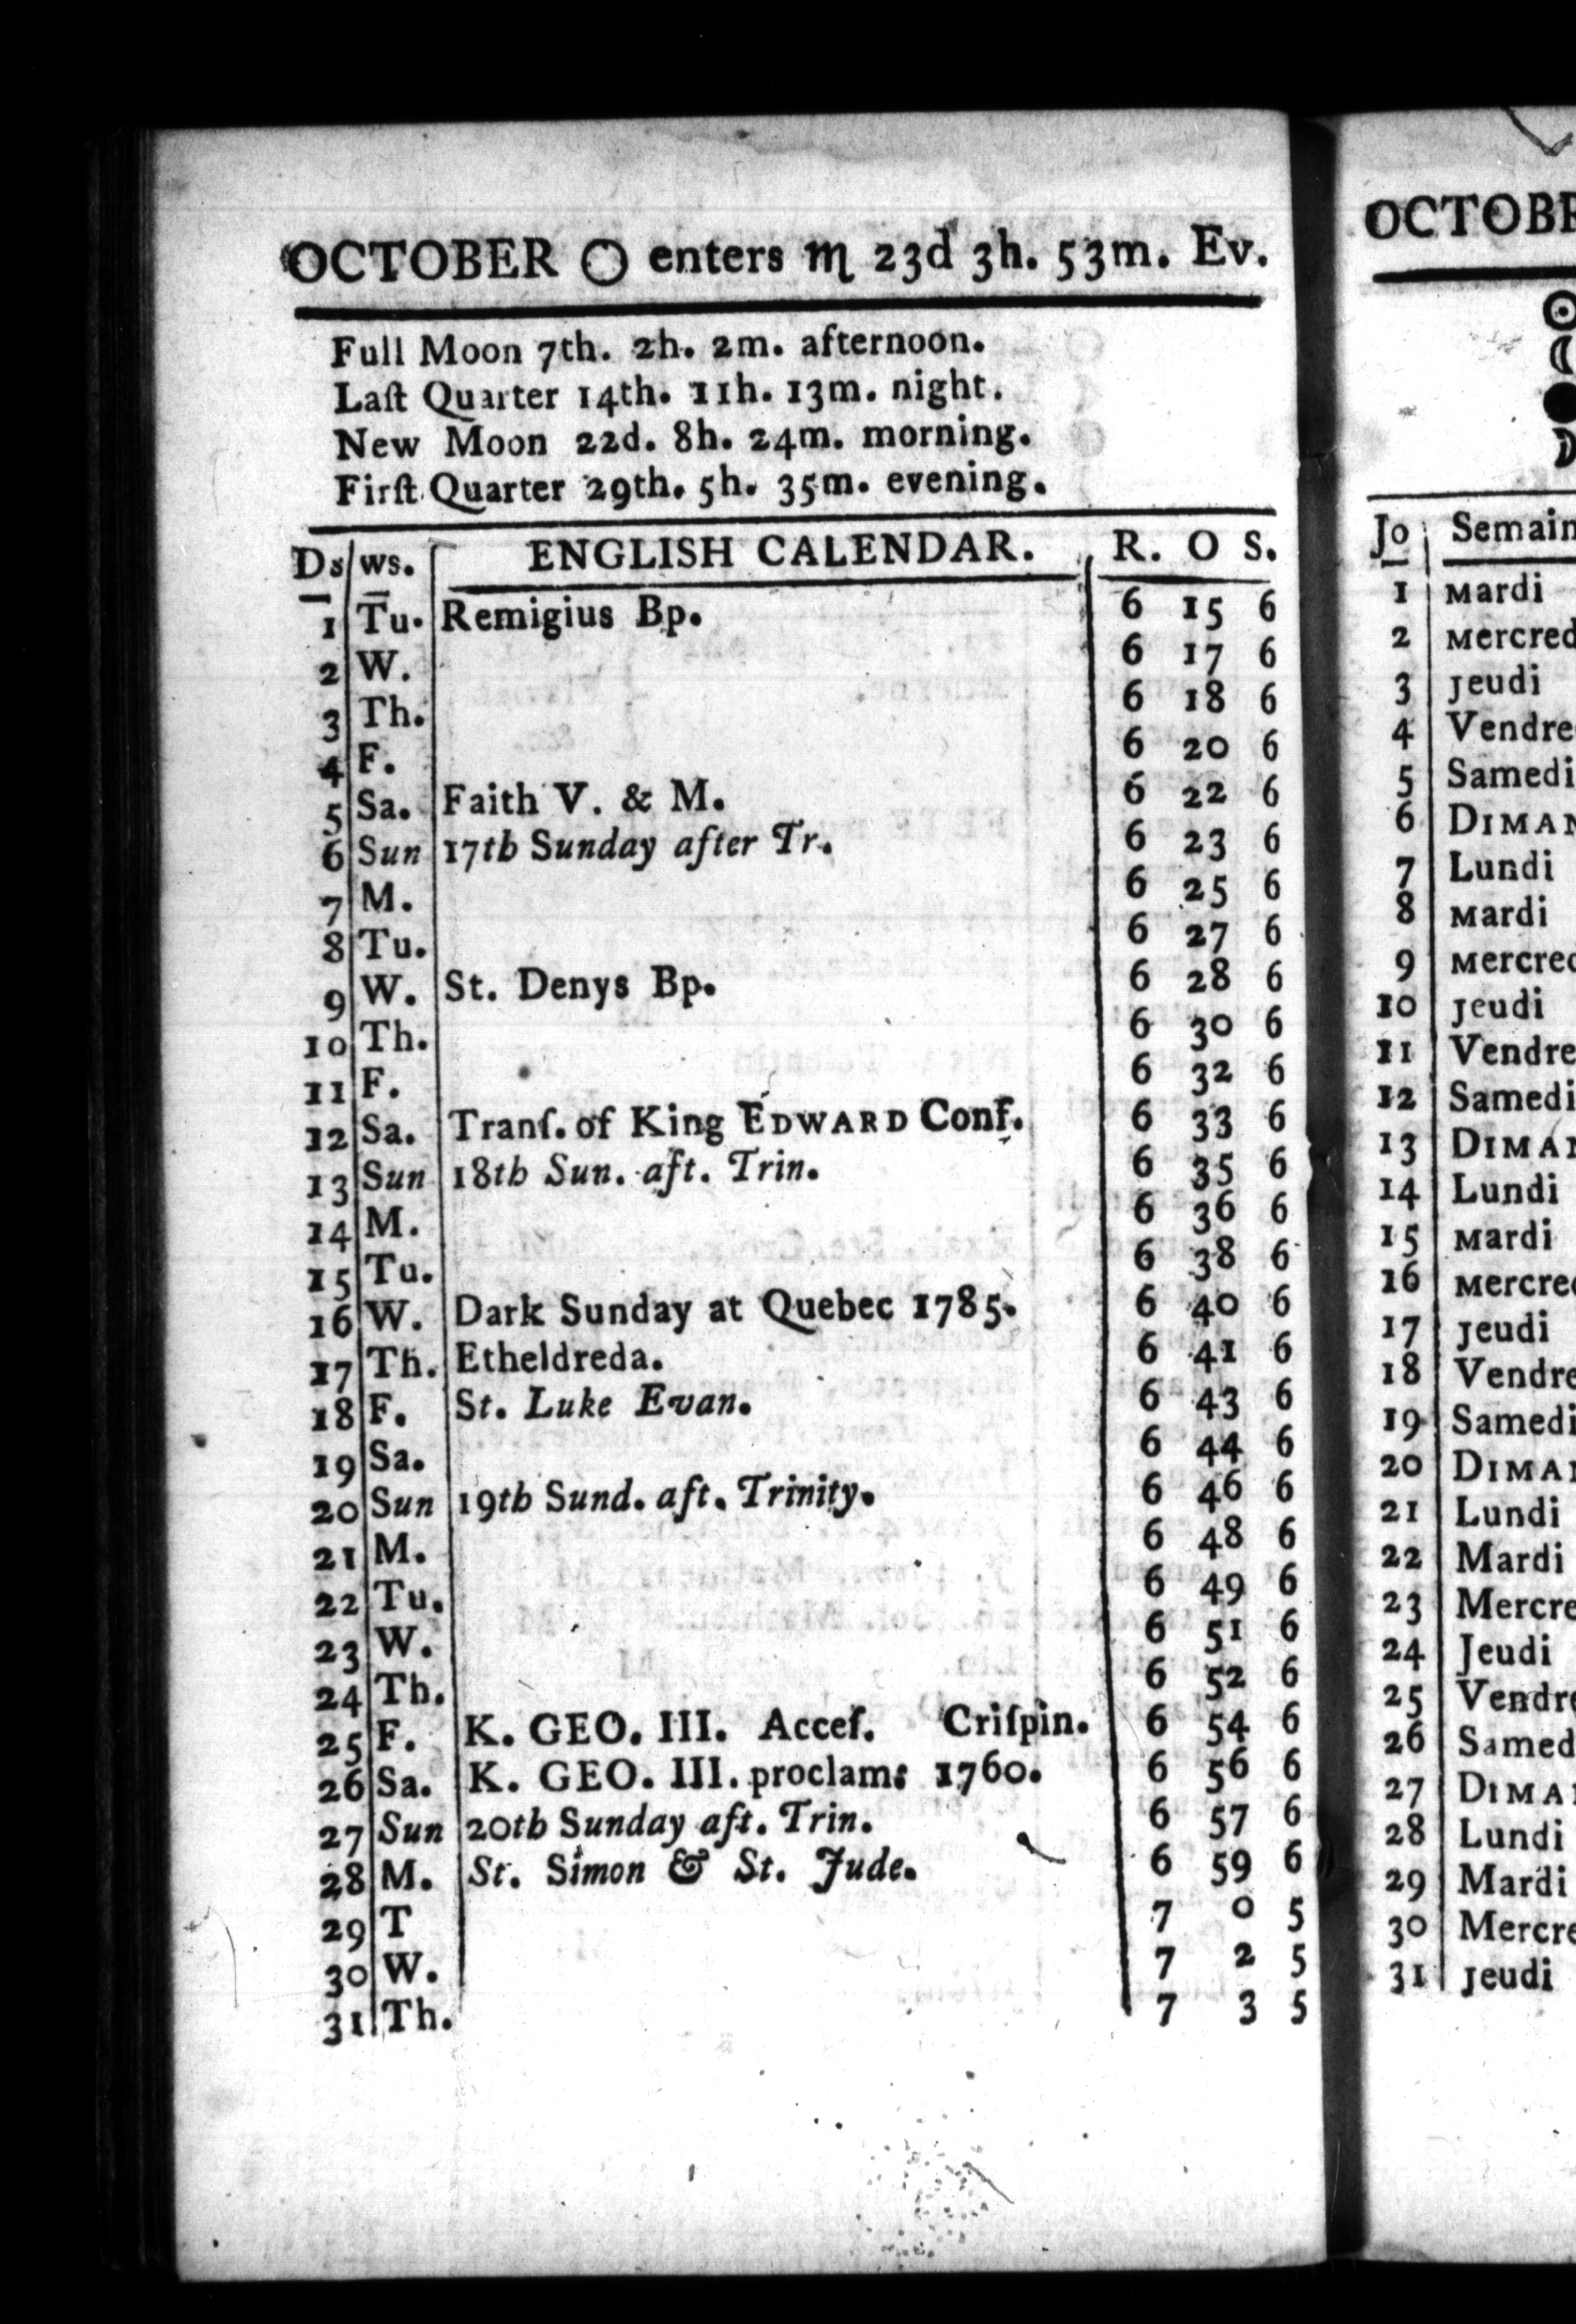 OCTOBER ◯ enters ♏ 23d 3h. 53m. Ev.
Full Moon 7th. 2h. 2m. afternoon.
Laſt Quarter 14th. 11h. 13m. night.
New Moon 22d. 8h. 24m. morning.
Firſt Quarter 29th. 5h. 35m. evening.
Ds ws. ENGLISH CALENDAR. R. O S.
1 Tu. Remigius Bp. 6 15 6
2 W. 6 17 6
3 Th. 6 18 6
4 F. 6 20 6
5 Sa. Faith V. & M. 6 22 6
6 Sun 17th Sunday after Tr. 6 23 6
7 M. 6 25 6
8 Tu. 6 27 6
9 W. St. Denys Bp. 6 28 6
10 Th. 6 30 6
11 F. 6 32 6
12 Sa. Tranſ. of King EDWARD Conf. 6 33 6
13 Sun 18th Sun. aft. Trin. 6 35 6
14 M. 6 36 6
15 Tu. 6 38 6
16 W. Dark Sunday at Quebec 1785. 6 40 6
17 Th. Etheldreda. 6 41 6
18 F. St. Luke Evan. 6 43 6
19 Sa. 6 44 6
20 Sun 19th Sund. aft. Trinity. 6 46 6
21 M. 6 48 6
22 Tu. 6 49 6
23 W. 6 51 6
24 Th. 6 52 6
25 F. K. GEO. III. Acceſ. Criſpin. 6 54 6
26 Sa. K. GEO. III. proclam: 1760. 6 56 6
27 Sun 20th Sunday aft. Trin. 6 57 6
28 M. St. Simon & St. Jude. 6 59 6
29 T 7 0 5
30 W. 7 2 5
31 Th. 7 3 5
OCTOBR
Jo Semain
1 Mardi
2 Mercred
3 Jeudi
4 Vendre
5 Samedi
6 DIMAN
7 Lundi
8 Mardi
9 Mercred
10 Jeudi
11 Vendre
12 Samedi
13 DIMAN
14 Lundi
15 Mardi
16 Mercred
17 Jeudi
18 Vendre
19 Samedi
20 DIMAN
21 Lundi
22 Mardi
23 Mercre
24 Jeudi
25 Vendre
26 Samed
27 DIMA
28 Lundi
29 Mardi
30 Mercre
31 Jeudi